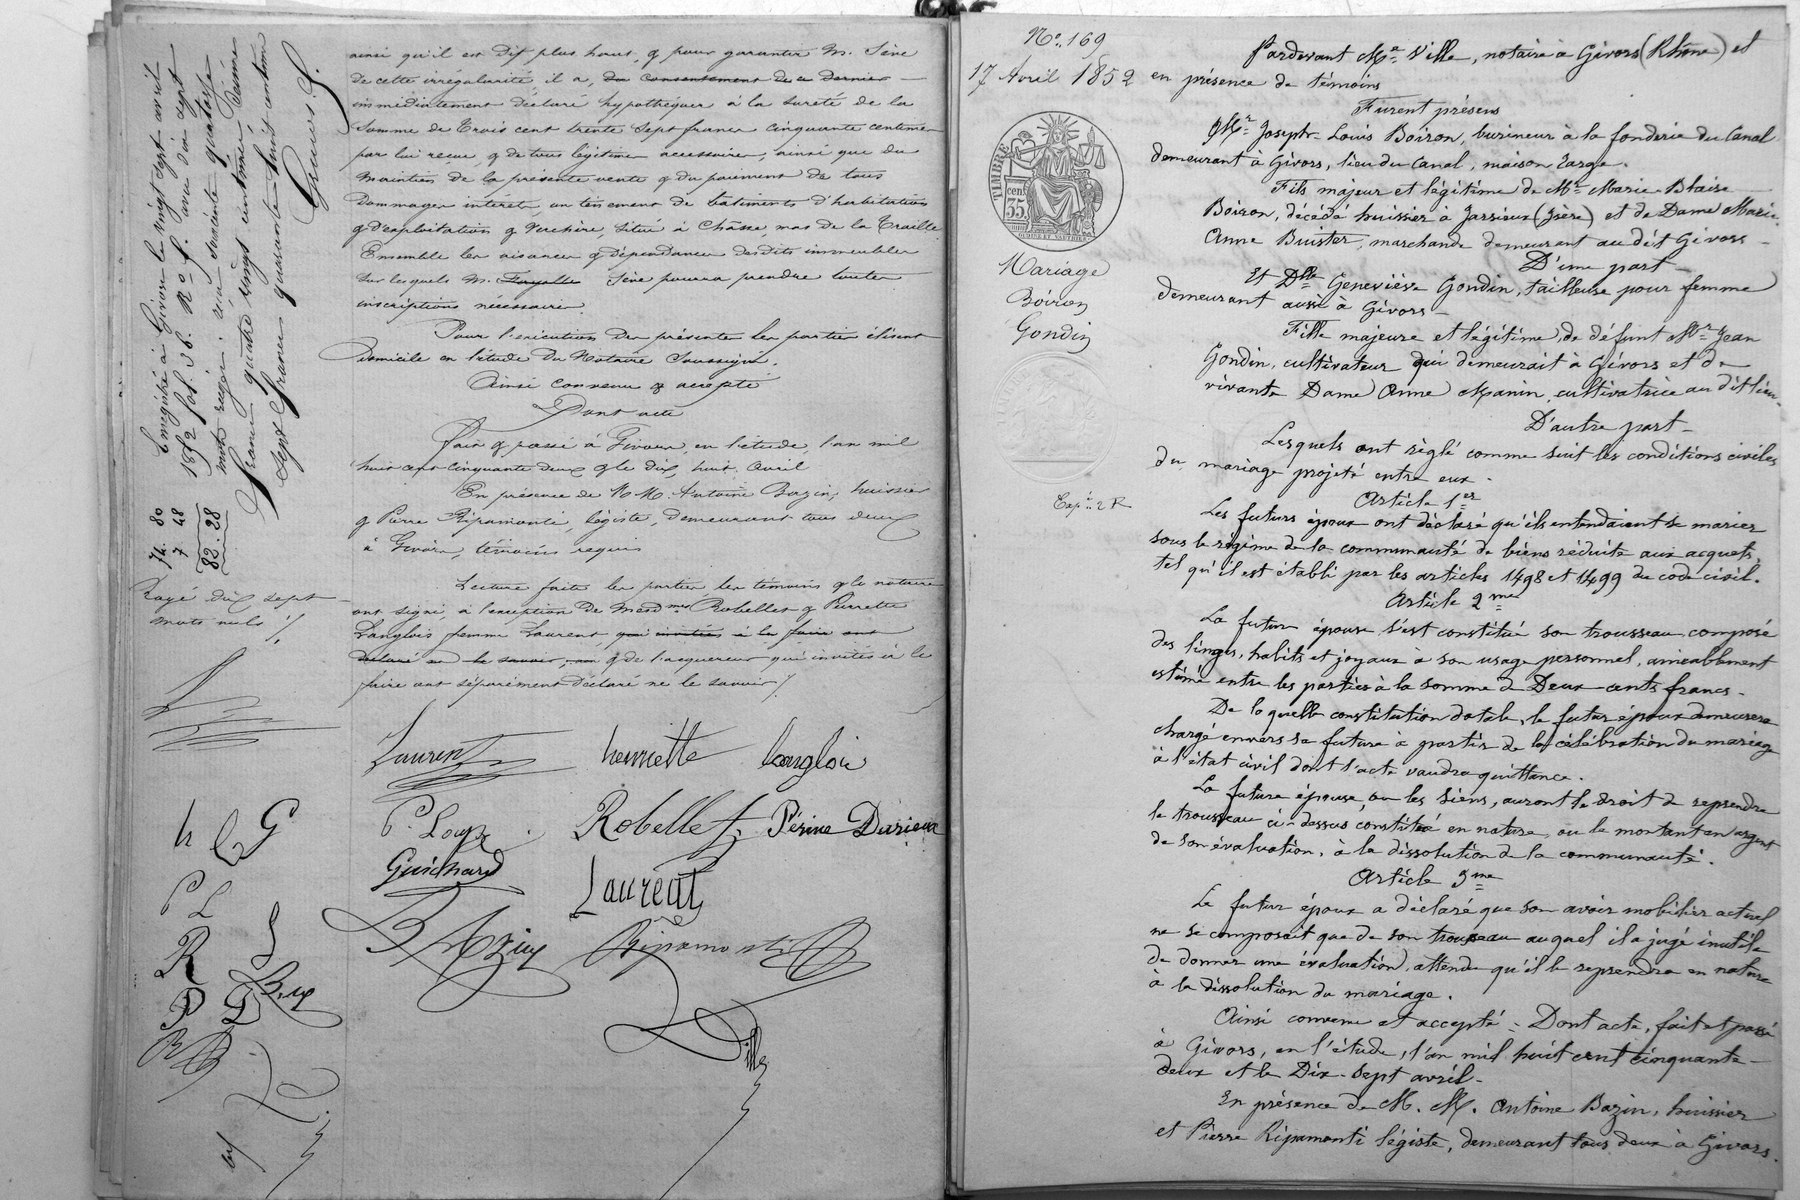 ainsi qu'il est dit plus haut, & pour garantir M. Sève
de cette irrégularité, il a, du consentement de ce dernier
immédiatement déclaré hypothéquer à la sureté de la
Somme de Trois cent trente Sept francs cinquante centimes
par lui reçue, & de tous légitimes accessoires, ainsi que du
maintien de la présente vente & du paiement de tous
dommages intérêts, un tènement de bâtiments d'habitation
& d'exploitation & Verchère, situé à Chasse, mas de la Traille
Ensemble les aisances & dépendances desdits immeubles
sur lesquels M. Sève pourra prendre toutes
inscriptions nécessaires.
Pour l'exécution des présentes les parties élisent
domicile en l'étude du Notaire Soussigné.
Ainsi convenu & accepté
Dont acte
Fait & passé à Givors, en l'étude, l'an mil
huit cent cinquante deux & le dix huit Avril
En présence de M.M. Antoine Bazin, huissier
& Pierre Ripamonti, légiste, demeurant tous deux
à Givors, témoins requis
Lecture faite les parties, les témoins & le notaire
ont signé, à l'exception de Mesd.mes Robellet & Pierrette
Langlois femme Laurent, qui invitées à le faire ont
déclaré ne le savoir, & de l'acquereur qui invités à le
faire ont séparément déclaré ne le savoir /.
Laurent henriette langlois
P. Loup Robellet Périne Durieux
Guichard Laurent
Bazin Ripamonti
Ville
Enregistré à Givors le vingt sept avril
1852 fol. 36. R° f. avec dix sept
mots rayés. reçu soixante quatorze
francs quatre vingt centimes, Décime
Sept francs quarante huit centimes
74. 80
7 48
82. 28
Rayé dix sept
mots nuls /.
h l G
P L
R
P D
R
N° 169
17 Avril 1852
TIMBRE
35 cent
Mariage
Boiron
Gondin
Exp. 2 R
Pardevant Me Ville, notaire à Givors (Rhône) et
en présence de témoins
Furent présens
Mr Joseph Louis Boiron, burineur à la fonderie du Canal
demeurant à Givors, lieu du Canal, maison Zarge.
Fils majeur et légitime de Mr Marie Blaise
Boiron, décédé huissier à Jarsieux (Isère) et de Dame Marie
Anne Buister, marchande demeurant au dit Givors
D'une part
Et Dlle Geneviève Gondin, tailleuse pour femme
demeurant aussi à Givors
Fille majeure et légitime, de défunt Mr Jean
Gondin, cultivateur qui demeurait à Givors et de
vivante Dame Anne Manin, cultivatrice au dit lieu
D'autre part
Lesquels ont règlé comme suit les conditions civiles
du mariage projeté entre eux.
Article 1er
Les futurs époux ont déclaré qu'ils entendaient se marier
sous le régime de la communauté de biens réduite aux acquets,
tel qu'il est établi par les articles 1498 et 1499 du code civil.
Article 2me
La future épouse s'est constituée son trousseau composé
des linges, habits et joyaux à son usage personnel, amiablement
estimé entre les parties à la somme de Deux cents francs.
De la quelle constitution dotale, le futur époux demeurera
chargé envers sa future à partir de la célébration du mariage
à l'état civil dont l'acte vaudra quittance.
La future épouse, ou les siens, auront le droit de reprendre
le trousseau ci-dessus constitué en nature, ou le montant en argent
de son évaluation, à la dissolution de la communauté.
Article 3me
Le futur époux a déclaré que son avoir mobilier actuel
ne se composait que de son trousseau auquel il a jugé inutile
de donner une évaluation, attendu qu'il le reprendra en nature
à la dissolution du mariage.
Ainsi convenu et accepté = Dont acte, fait et passé
à Givors, en l'étude, l'an mil huit cent cinquante-
deux et le Dix-sept avril.
En présence de M. M. Antoine Bazin, huissier
et Pierre Ripamonti légiste, demeurant tous deux à Givors.